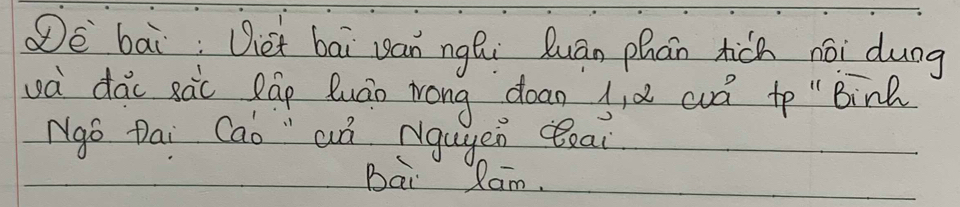 Đề bài : Viết bài văn nghị luận phân tích nội dung
và đặc sắc lập luận trong đoạn 1,2 của tp "Bình
Ngô Đại Cáo" của Nguyễn Trãi.
Bài làm.